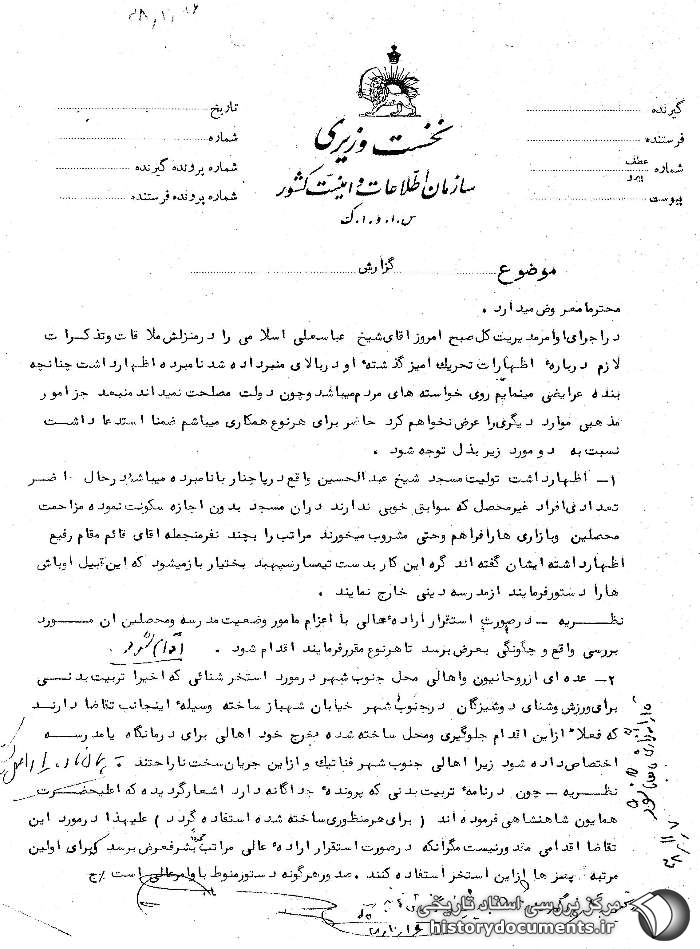 گیرنده
فرستنده
شماره عطف
پیرو
پیوست
نخست وزیری
سازمان اطلاعات و امنیت کشور
س.ا.و.ا.ک
تاریخ
شماره
شماره پرونده گیرنده
شماره پرونده فرستنده
موضوع گزارش
محترما معروض میدارد .
در اجرای اوامر مدیریت کل صبح امروز آقای شیخ عباسعلی اسلامی را در منزلش ملاقات و تذکرات
لازم درباره اظهارات تحریک امیز گذشته او در بالای منبر داده شد نامبرده اظهار داشت چنانچه
بنده عرایضی مینمایم روی خواسته های مردم میباشد و چون دولت مصلحت نمیداند منبعد جز امور
مذهبی موارد دیگری را عرض نخواهم کرد حاضر برای هر نوع همکاری میباشم ضمنا استدعا داشت
نسبت به دو مورد زیر بذل توجه شود .
۱- اظهار داشت تولیت مسجد شیخ عبدالحسین واقع در پاچنار با نامبرده میباشد در حال حاضر
تعدادی افراد غیر محصل که سوابق خوبی ندارند در ان مسجد بدون اجازه سکونت نموده مزاحمت
محصلین و بازاری ها را فراهم وحتی مشروب میخورند مراتب را بچند نفر منجمله اقای قائم مقام رفیع
اظهار داشته ایشان گفته اند گره این کار بدست تیمسار سپهبد بختیار باز میشود که این قبیل اوباش
ها را دستور فرمایند از مدرسه دینی خارج نمایند .
نظریه - در صورت استقرار اراده عالی با اعزام مامور وضعیت مدرسه و محصلین ان مورد
بررسی واقع و چگونگی بعرض برسد تا هر نوع مقرر فرمایند اقدام شود . اقدام شود
۲- عده ای از روحانیون واهالی محل جنوب شهر در مورد استخر شنائی که اخیرا تربیت بدنی
برای ورزش وشنای دوشیزگان در جنوب شهر خیابان شهباز ساخته وسیله اینجانب تقاضا دارند
که فعلا از این اقدام جلوگیری ومحل ساخته شده بخرج خود اهالی برای درمانگاه یا مدرسه
اختصاص داده شود زیرا اهالی جنوب شهر فناتیک و از این جریان سخت ناراحتند .
نظریه - چون در نامه تربیت بدنی که پرونده جداگانه دارد اشعار گردیده که اعلیحضرت
همایون شاهنشاهی فرموده اند ( برای هر منظوری ساخته شده استفاده گردد ) علیهذا در مورد این
تقاضا اقدامی مقدور نیست مگر آنکه در صورت استقرار اراده عالی مراتب بشرفعرض برسد که برای اولین
مرتبه پسر ها از این استخر استفاده کنند . صدور هرگونه دستور منوط باوامر عالی است
مرکز بررسی اسناد تاریخی
historydocuments.ir